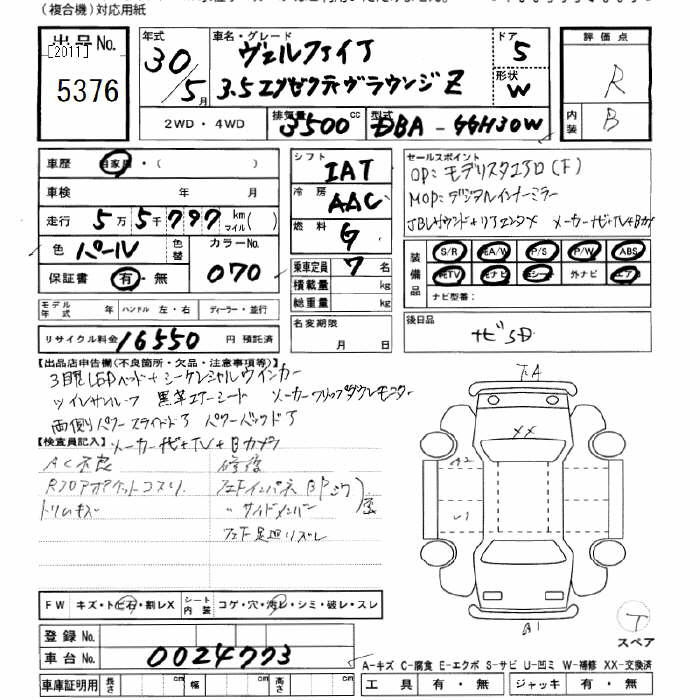 (複合機)対応用紙
出品No.
[2011]
5376
年式
30/5月
車名・グレード
ヴェルファイア
3.5エグゼクティブラウンジZ
ドア
5
形状
W
評価点
R
内装
B
2WD・4WD
排気量
3500cc
型式
DBA-GGH30W
車歴
自家用・( )
車検 年 月
走行 5万5千797km マイル( )
色 パール
色替
カラーNo.
070
保証書 有・無
シフト
IAT
冷房
AAC
燃料
G
乗車定員 7 名
積載量 kg
総重量 kg
セールスポイント
OP:モデリスタエアロ(F)
MOP:デジタルインナーミラー
JBLサウンド+リアエンタメ メーカーナビ+TV+Bカメ
装備品
S/R
純A/W
P/S
P/W
ABS
純TV
純ナビ
革シート
外ナビ
エアB
ナビ型番:
モデル年式 年
ハンドル 左・右
ディーラー・並行
リサイクル料金 16550 円 預託済
名変期限
月 日
後日品
ナビSD
【出品店申告欄(不良箇所・欠品・注意事項等)】
3眼LEDヘッド+シーケンシャルウインカー
ツインサンルーフ 黒革エアーシート メーカーフリップダウンモニター
両側パワースライドドア パワーバックドア
【検査員記入】メーカーナビ+TV+Bカメラ
AC不良 修復
Rフロアポケットコスリ
トリムキズ
〃 サイドメンバー
FW キズ・トビ石・割レX
シート内装 コゲ・穴・汚レ・シミ・破レ・スレ
登録No.
車台No. 0024773
車庫証明用 長さ cm 幅 cm 高さ cm
F.A
XX
A2
U1
B1
T
スペア
A-キズ C-腐食 E-エクボ S-サビ U-凹ミ W-補修 XX-交換済
工具 有・無 ジャッキ 有・無